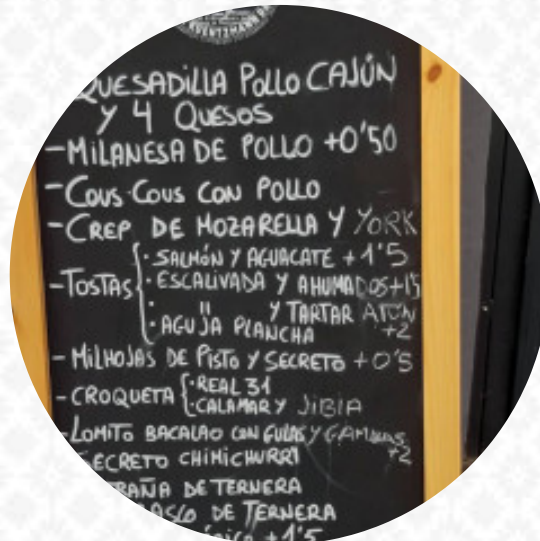 QUESADILLA POLLO CAJÚN
Y 4 QUESOS
-MILANESA DE POLLO +0'50
-COUS-COUS CON POLLO
-CREP DE MOZARELLA Y YORK
-TOSTAS { · SALMÓN Y AGUACATE +1'5
· ESCALIVADA Y AHUMADOS+1'5
· " Y TARTAR ATÚN
· AGUJA PLANCHA +2
- MILHOJAS DE PISTO Y SECRETO +0'5
- CROQUETA { · REAL 31
· CALAMAR Y JIBIA
-LOMITO BACALAO CON GULAS Y GAMBAS
+2
SECRETO CHIMICHURRI
DE TERNERA
DE TERNERA
+1'5